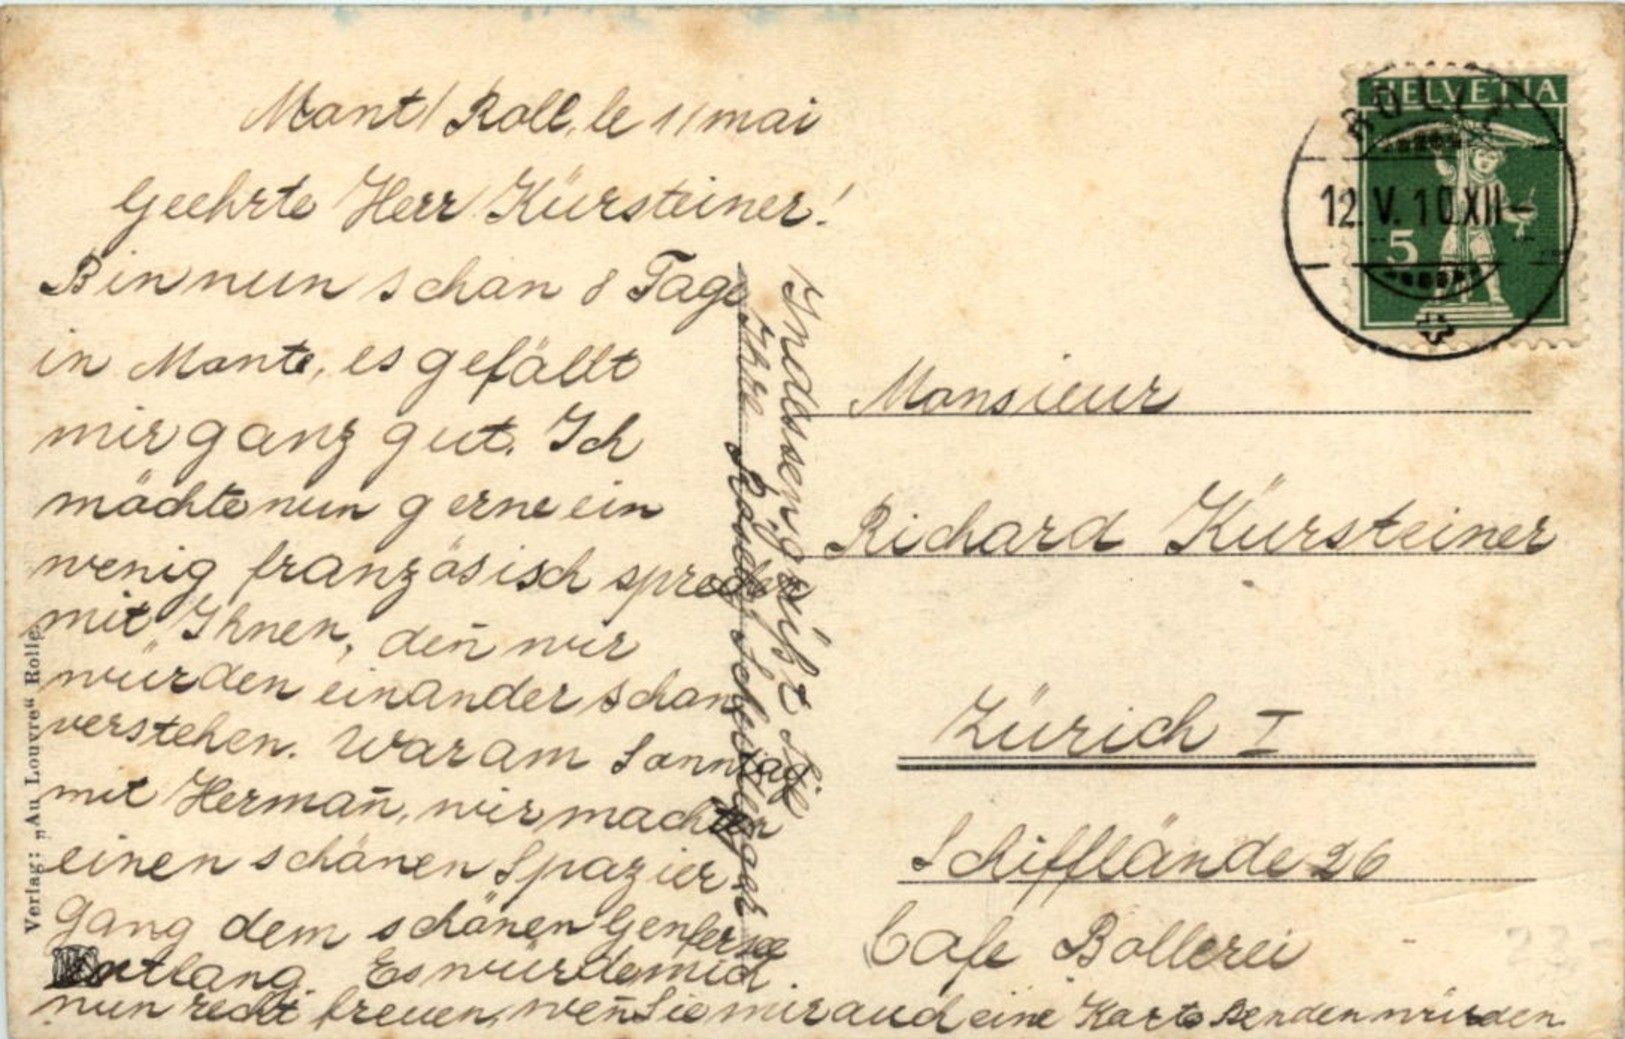 Mont s/ Roll, le 11 mai
Geehrte Herr Kürsteiner!
Bin nun schon 8 Tage
in Monte, es gefällt
mir ganz gut. Ich
möchte nun gerne ein
wenig französisch sprechen
mit Ihnen, den̄ wir
würden einander schon
verstehen. War am Sonntag
mit Herman̄, wir machten
einen schönen Spazier
gang dem schönen Genfersee
entlang. Es würde mich
nun recht freuen, wen̄ Sie mir auch eine Karte senden würden.
Indessen grüßt Sie
Ihre Rösedy
HELVETIA
5
ROLLE
12.V.10.XII-
Monsieur
Richard Kürsteiner
Zürich I
Schifflände 26
Cafe Bollerei
Verlag: „Au Louvre“ Rolle